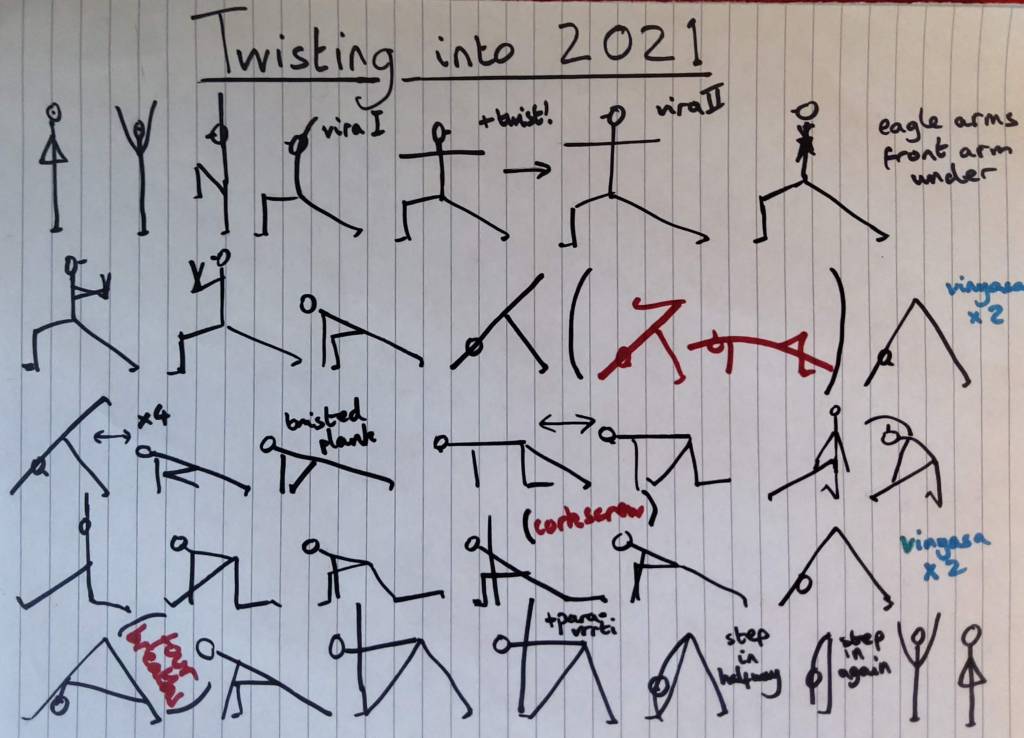 Twisting into 2021
vira I
+ twist!
vira II
eagle arms
front arm
under
vinyasa
x 2
x4
twisted
plank
(corkscrew)
vinyasa
x 2
+ pari
vrtti
step
in
halfway
step
in
again